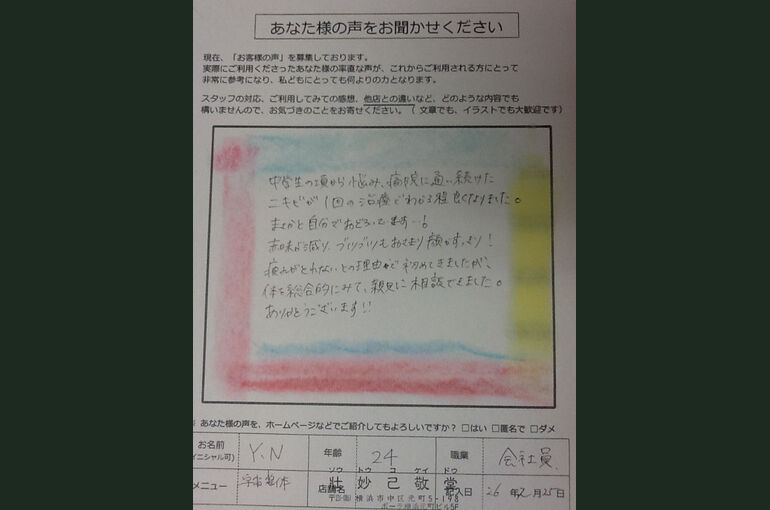 あなた様の声をお聞かせください
現在、「お客様の声」を募集しております。
実際にご利用くださったあなた様の率直な声が、これからご利用される方にとって
非常に参考になり、私どもにとっても何よりの力となります。
スタッフの対応、ご利用してみての感想、他店との違いなど、どのような内容でも
構いませんので、お気づきのことをお寄せください。（ 文章でも、イラストでも大歓迎です）
中学生の頃から悩み、病院に通い続けた
ニキビが1回の治療でわかる程良くなりました。
まさかと自分でおどろいてます…!
赤味が減り、ブツブツもおさまり顔がすっきり!
痛みがとれないとの理由で初めてきましたが、
体を総合的にみて、親身に相談できました。
ありがとうございます!!
あなた様の声を、ホームページなどでご紹介してもよろしいですか？ □はい □匿名で □ダメ
お名前 Y.N 年齢 24 職業 会社員
イニシャル可)
メニュー 整体 店舗名 壮妙己敬堂 記入日 26年 月25日
ソウ トウ コ ケイ ドウ
横浜市中区元町5-198
ポーラ横浜元町ビル5F